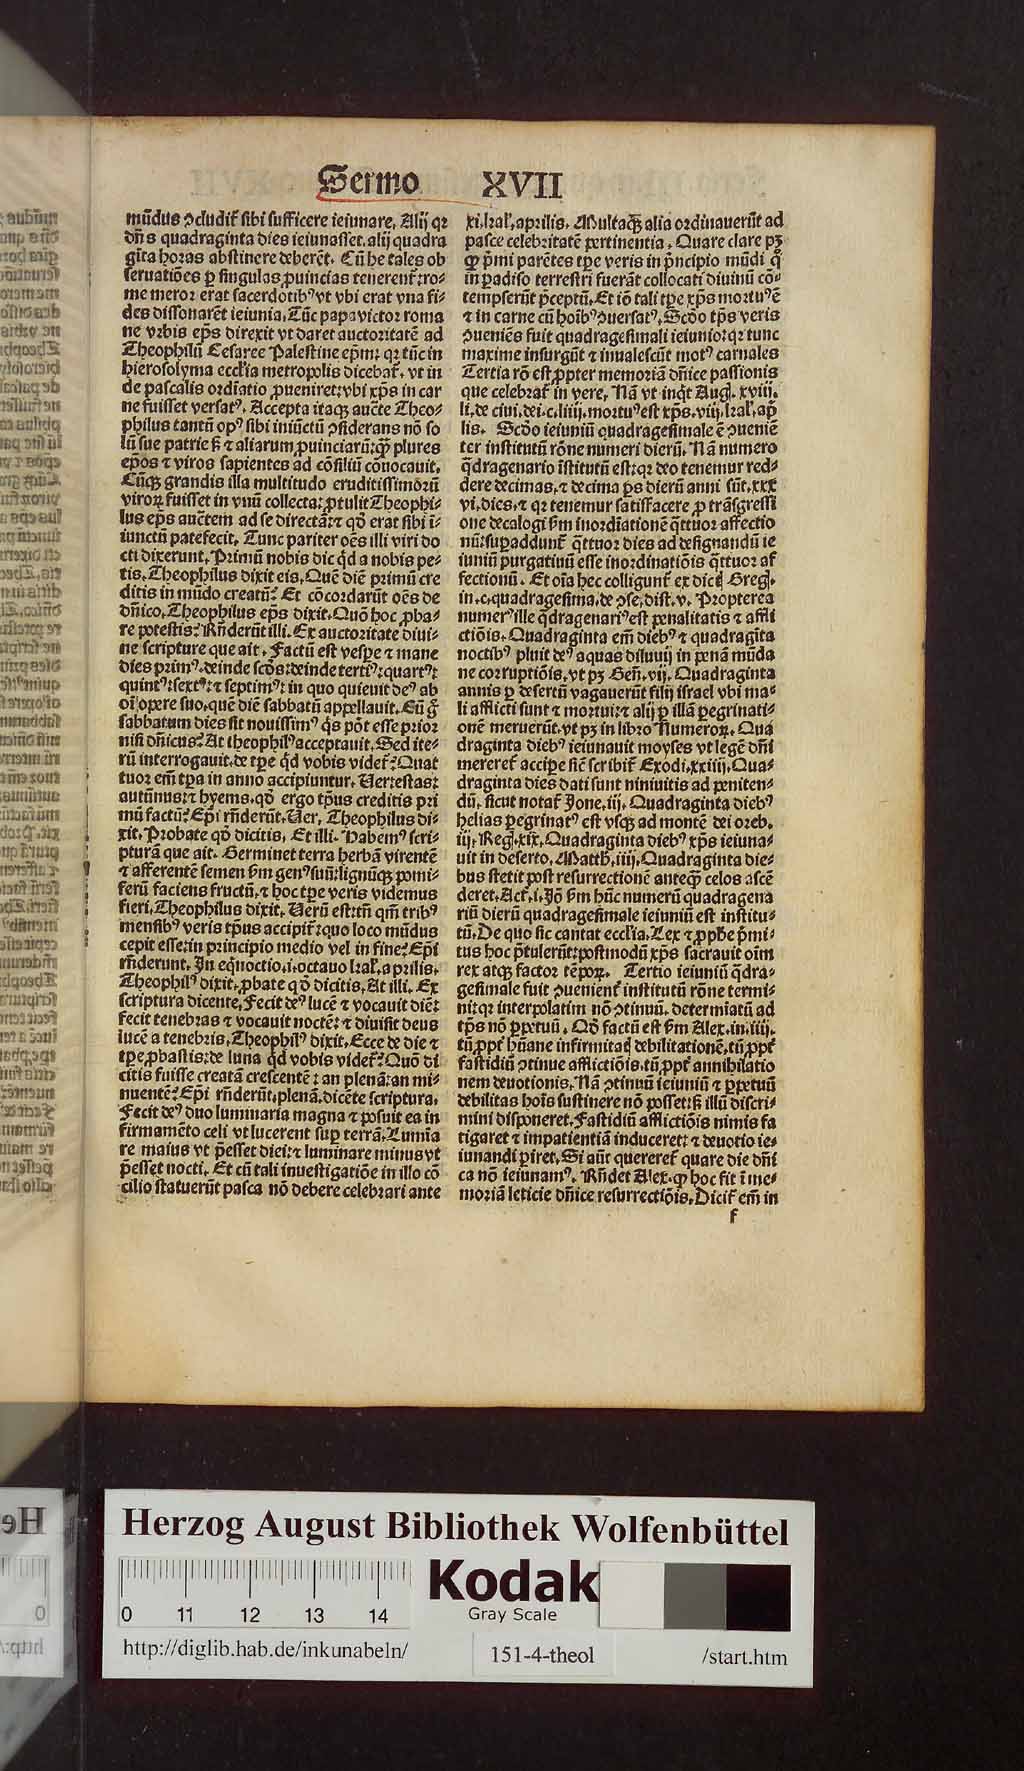 Sermo XVII
mūdus ꝯcludit̄ sibi sufficere ieiunare. Alij qꝛ
dn̄s quadraginta dies ieiunasset. alij quadra
gīta horas abstinere deberēt. Cū he tales ob
seruatiōes ꝑ singulas ꝓuincias tenerent̄: ro⸗
me meror erat sacerdotibꝰ vt vbi erat vna fi⸗
des dissonarēt ieiunia. Tūc papa victor roma
ne vrbis ep̄s direxit vt daret auctoritatē ad
Theophilū Cesaree Palestine ep̄m: qꝛ tūc in
hierosolyma eccl̄ia metropolis dicebat̄. vt in
de pascalis ordīatio ꝓueniret: vbi xp̄s in car
ne fuisset versatꝰ. Accepta itaqꝫ auct̄e Theo⸗
philus tantū opꝰ sibi iniūctū ꝯsiderans nō so
lū sue patrie sꝫ ⁊ aliarum ꝓuinciarū: qꝫ plures
ep̄os ⁊ viros sapientes ad cōsiliū cōuocauit.
Cūqꝫ grandis illa multitudo eruditissimōrū
viroꝝ fuisset in vnū collecta: ꝓtulit Theophi⸗
lus ep̄s auct̄em ad se directā: ⁊ qd̄ erat sibi ī⸗
iunctū patefecit. Tunc pariter oēs illi viri do
cti dixerunt. Primū nobis dic qd̄ a nobis pe⸗
tis. Theophilus dixit eis. Quē diē primū cre
ditis in mūdo creatū? Et cōcordarūt oēs de
dn̄ico. Theophilus ep̄s dixit. Quō hoc ꝓba⸗
re potestis? Rn̄derūt illi. Ex auctoritate diui⸗
ne scripture que ait. Factū est vesꝑe ⁊ mane
dies primꝰ. deinde scd̄s: deinde tertiꝰ: quartꝰ:
quintꝰ: sextꝰ: ⁊ septimꝰ: in quo quieuit deꝰ ab
oī opere suo, quē diē sabbatū appellauit. Cū gͦ
sabbatum dies sit nouissimꝰ qͥs pōt esse prior
nisi dn̄icus? At theophilꝰ acceptauit. Sed ite⸗
rū interrogauit. de tꝑe qd̄ vobis videt̄? Quat
tuor em̄ tꝑa in anno accipiuntur. Ver: estas:
autūnus: ⁊ hyems. qd̄ ergo tp̄us creditis pri
mū factū? Ep̄i rn̄derūt. Ver. Theophilus di⸗
xit. Probate qd̄ dicitis. Et illi. Habemꝰ scri⸗
pturā que ait. Germinet terra herbā virentē
⁊ afferentē semen ẜm genꝰ suū: lignūqꝫ pomi⸗
ferū faciens fructū. ⁊ hoc tꝑe veris videmus
fieri. Theophilus dixit. Verū est: tn̄ qm̄ tribꝰ
mensibꝰ veris tp̄us accipit̄: quo loco mūdus
cepit esse: in principio medio vel in fine? Ep̄i
rn̄derunt. In eqͥnoctio. i. octauo kal'. aprilis.
Theophilꝰ dixit. ꝓbate qd̄ dicitis. At illi. Ex
scriptura dicente. Fecit deꝰ lucē ⁊ vocauit diē:
fecit tenebras ⁊ vocauit noctē: ⁊ diuisit deus
lucē a tenebris. Theophilꝰ dixit. Ecce de die ⁊
tꝑe ꝓbastis: de luna qd̄ vobis videt̄? Quō di
citis fuisse creatā crescentē: an plenā: an mi⸗
nuentē? Ep̄i rn̄derūt. plenā. dicēte scriptura.
Fecit deꝰ duo luminaria magna ⁊ posuit ea in
firmamēto celi vt lucerent suꝑ terrā. Lumīa
re maius vt p̄esset diei: ⁊ luminare minus vt
p̄esset nocti. Et cū tali inuestigatiōe in illo cō
cilio statuerūt pasca nō debere celebrari ante
xi. kal'. aprilis. Multaqꝫ alia ordinauerūt ad
pasce celebritatē pertinentia. Quare clare pꝫ
ꝙ pͥmi parētes tꝑe veris in pͥncipio mūdi qͥ
in padiso terrestri fuerāt collocati diuinū cō⸗
tempserūt p̄ceptū. Et iō tali tꝑe xp̄s mortuꝰ ē
⁊ in carne cū hoībꝰ ꝯuersatꝰ. Scd̄o tp̄s veris
ꝯueniēs fuit quadragesimali ieiunio: qꝛ tunc
maxime insurgūt ⁊ inualescūt motꝰ carnales
Tertia rō est ꝓpter memoriā dn̄ice passionis
que celebrat̄ in vere. Nā vt inqͥt Aug. xviij.
li. de ciui. dei. c. liiij. mortuꝰ est xp̄s. viij. kal'. apͥ
lis. Scd̄o ieiuniū quadragesimale ē ꝯueniē
ter institutū rōne numeri dierū. Nā numero
qͣdragenario īstitutū est: qꝛ deo tenemur red⸗
dere decimas. ⁊ decima ps dierū anni sūt. xxx
vi. dies. ⁊ qꝛ tenemur satisfacere ꝓ trāsgressi
one decalogi ẜm inordīationē qͣttuor affectio
nū: suꝑaddunt̄ qͣttuor dies ad designandū ie
iuniū purgatiuū esse inordinatiōis qͣttuor af
fectionū. Et oīa hec colligunt̄ ex dictꝭ Greg.
in. c. quadragesima. de ꝯse. dist. v. Propterea
numerꝰ ille qͣdragenariꝰ est penalitatis ⁊ affli
ctiōis. Quadraginta em̄ diebꝰ ⁊ quadragīta
noctibꝰ pluit deꝰ aquas diluuij in penā mūda
ne corruptiōis. vt pꝫ Gen̄. vij. Quadraginta
annis ꝑ desertū vagauerūt filij israel vbi ma⸗
li afflicti sunt ⁊ mortui: ⁊ alij ꝑ illā ꝑegrinati⸗
onē meruerūt. vt pꝫ in libro Numeroꝝ. Qua
draginta diebꝰ ieiunauit moyses vt legē dn̄i
mereret̄ accipe sic̄ scribit̄ Exodi. xxiiij. Qua⸗
draginta dies dati sunt niniuitis ad peniten⸗
dū. sicut notat̄ Jone. iij. Quadraginta diebꝰ
helias ꝑegrinatꝰ est vsqꝫ ad montē dei oreb.
iij. Reg. xix. Quadraginta diebꝰ xp̄s ieiuna⸗
uit in deserto. Matth. iiij. Quadraginta die⸗
bus stetit post resurrectionē anteqꝫ celos ascē
deret. Act̄. i. Jō ẜm hūc numerū quadragena
riū dierū quadragesimale ieiuniū est institu⸗
tū. De quo sic cantat eccl̄ia. Lex ⁊ ꝓphe pͥmi⸗
tus hoc ꝓtulerūt: postmodū xp̄s sacrauit oīm
rex atqꝫ factor tēpoꝝ. Tertio ieiuniū qͣdra⸗
gesimale fuit ꝯuenient̄ institutū rōne termi⸗
ni: qꝛ interpolatim nō ꝯtinuū. determiatū ad
tp̄s nō ꝑpetuū. Qd̄ factū est ẜm Alex. in. iiij.
tū ꝓpt̄ hūane infirmitatꝭ debilitationē. tū ꝓpt̄
fastidiū ꝯtinue afflictiōis. tū ꝓpt̄ annihilatio
nem deuotionis. Nā ꝯtinuū ieiuniū ⁊ ꝑpetuū
debilitas hoīs sustinere nō posset: sꝫ illū discri⸗
mini disponeret. Fastidiū afflictiōis nimis fa
tigaret ⁊ impatientiā induceret: ⁊ deuotio ie⸗
iunandi ꝑiret. Si aūt quereret̄ quare die dn̄i
ca nō ieiunamꝰ. Rn̄det Alex. ꝙ hoc fit ī me⸗
moriā leticie dn̄ice resurrectiōis. Dicit̄ em̄ in
f
Herzog August Bibliothek Wolfenbüttel
0 11 12 13 14
Kodak
Gray Scale
http://diglib.hab.de/inkunabeln/ 151-4-theol /start.htm